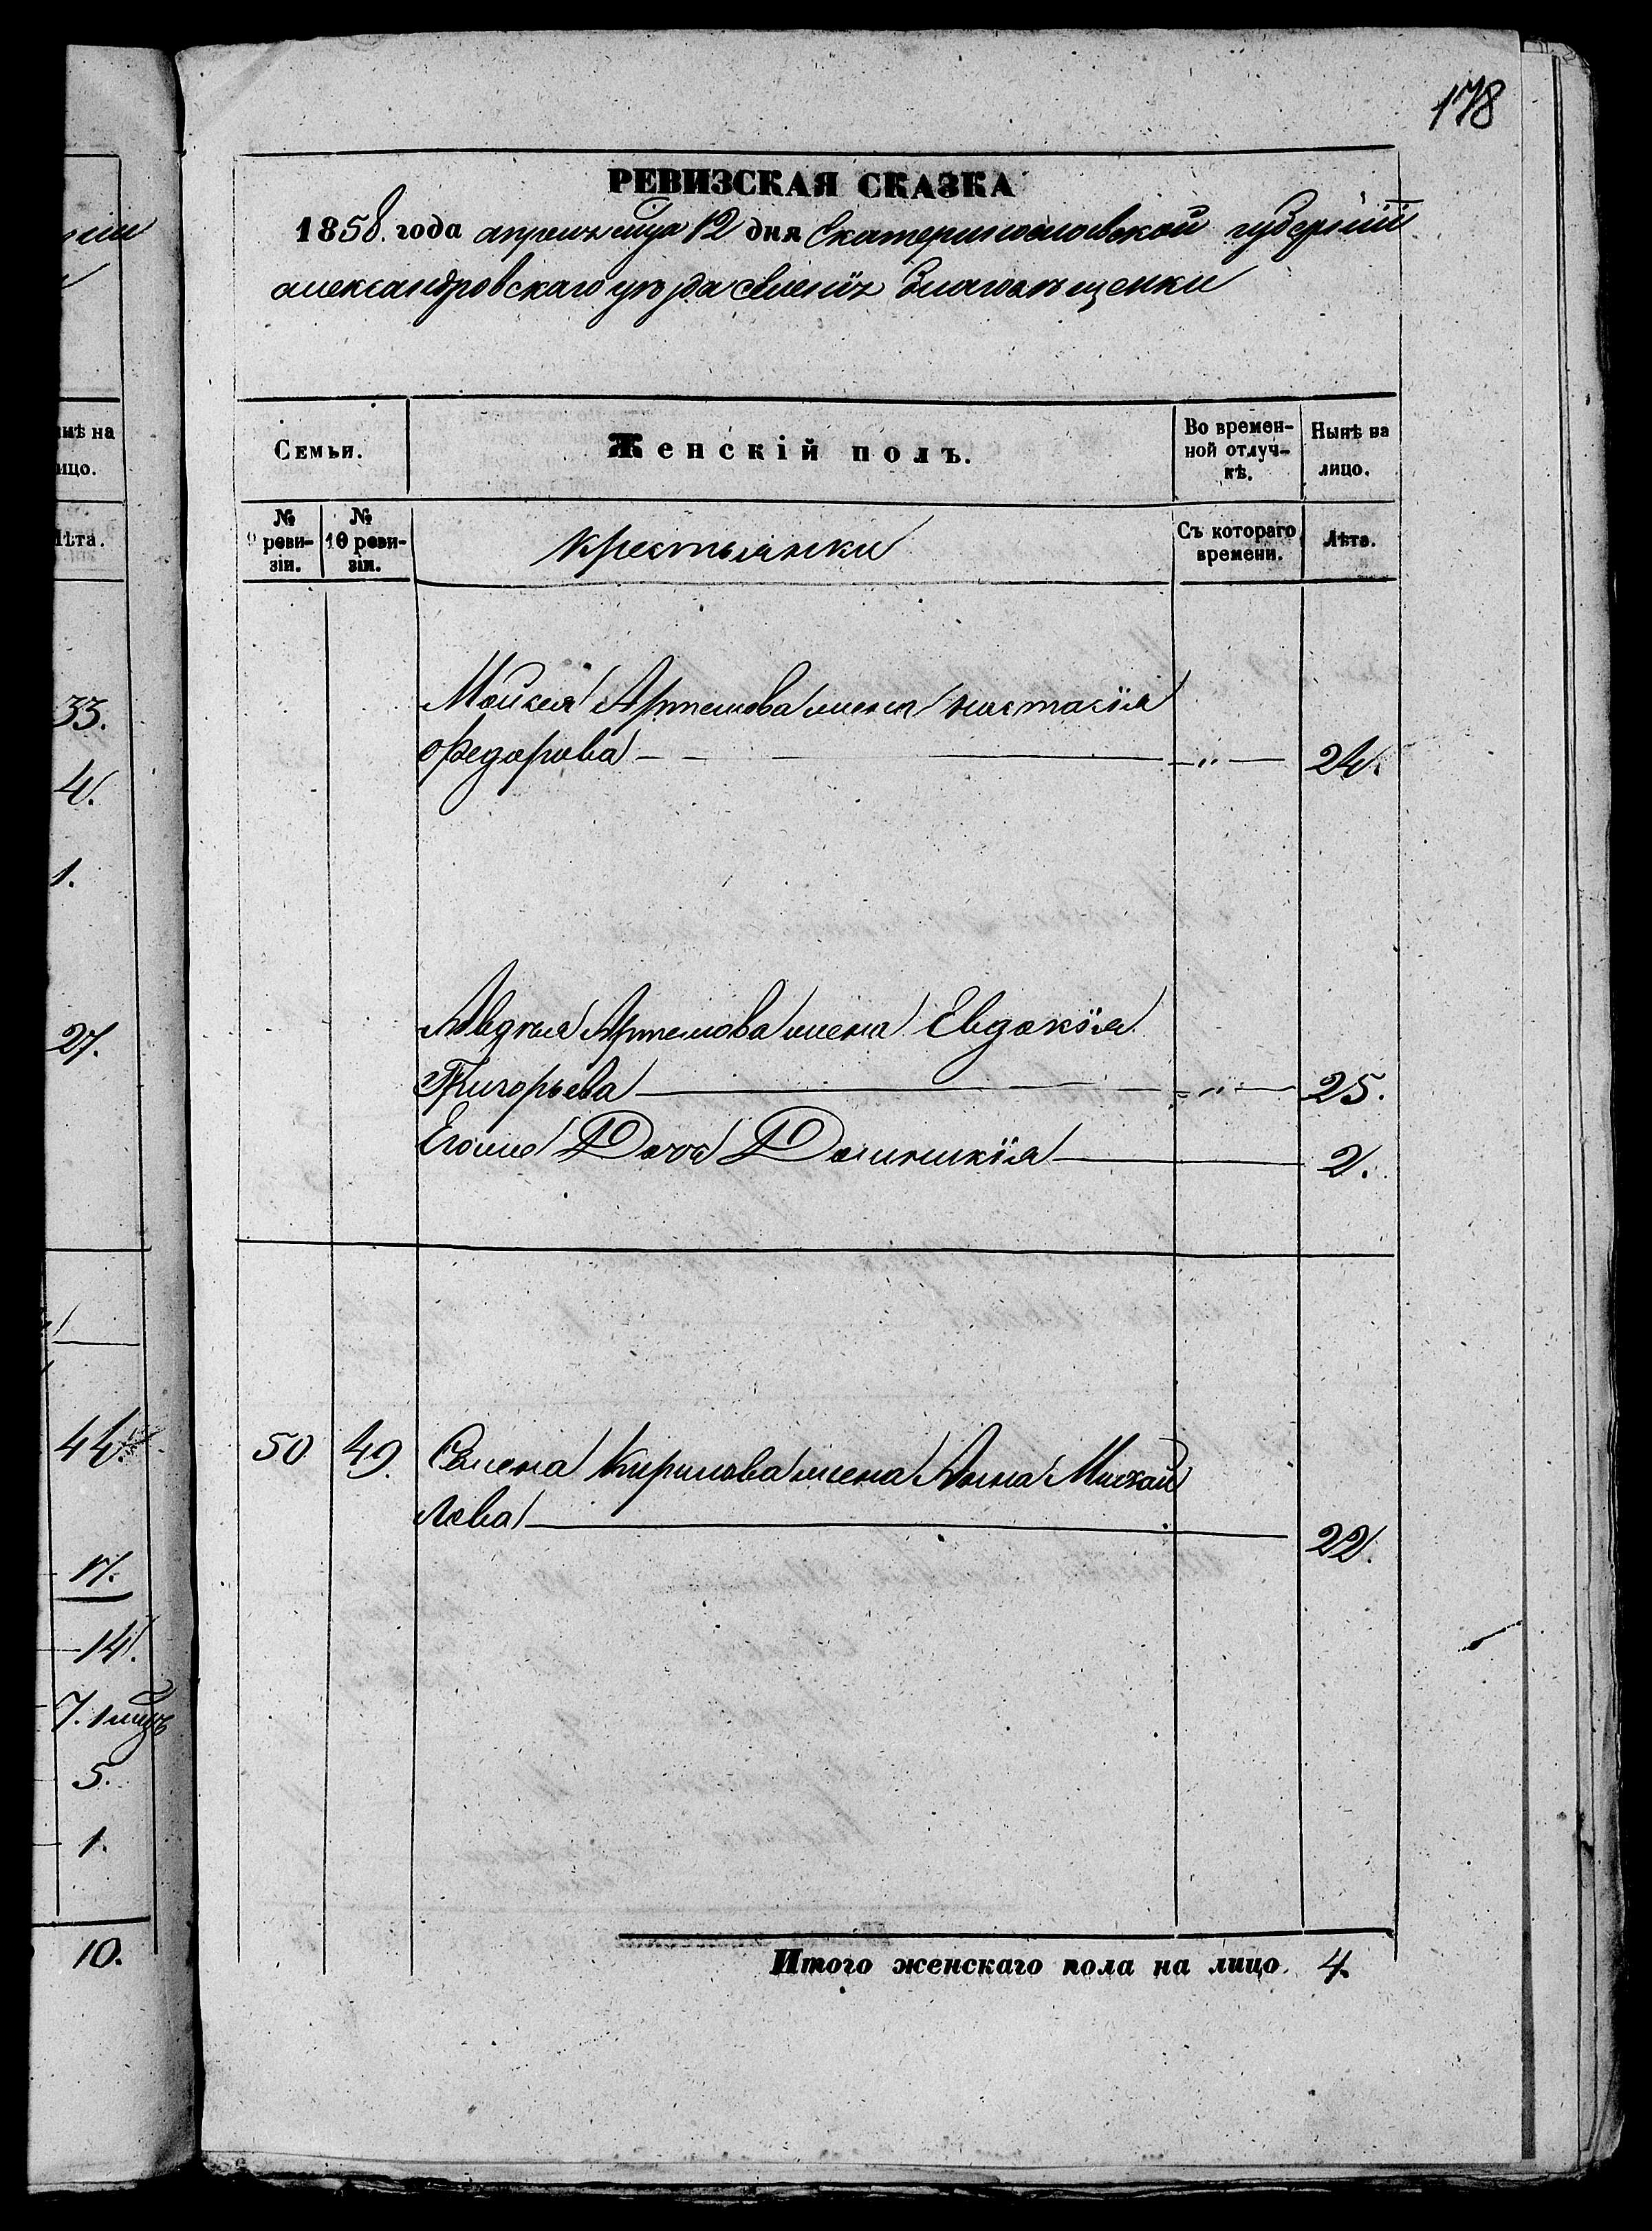 178
РЕВИЗСКАЯ СКАЗКА
1858. года апреля мца 12 дня Екатеринославской губернїи
александровского уезда Благовещенки
Семьи. Женскій полъ. Во времен-
ной отлуч-
кѣ. Нынѣ на
лицо.
№
9 реви-
зіи. №
10 реви-
зіи. крестьянки Съ котораго
времени. Лѣта.
Мойсея Артемова жена настасїя
Федорова — „ — 24.
Авдея Артемова жена Евдокїя
Григорьева — „ — 25.
Егоже Дочь Домникїя — 2.
50 49. Семена Кирилова жена Анна Михай
лова — 22.
Итого женскаго пола на лицо. 4.
нѣ на
ицо.
Лѣта.
33.
4.
1.
27.
44.
17.
14.
7. 1 мцъ
5.
1.
10.